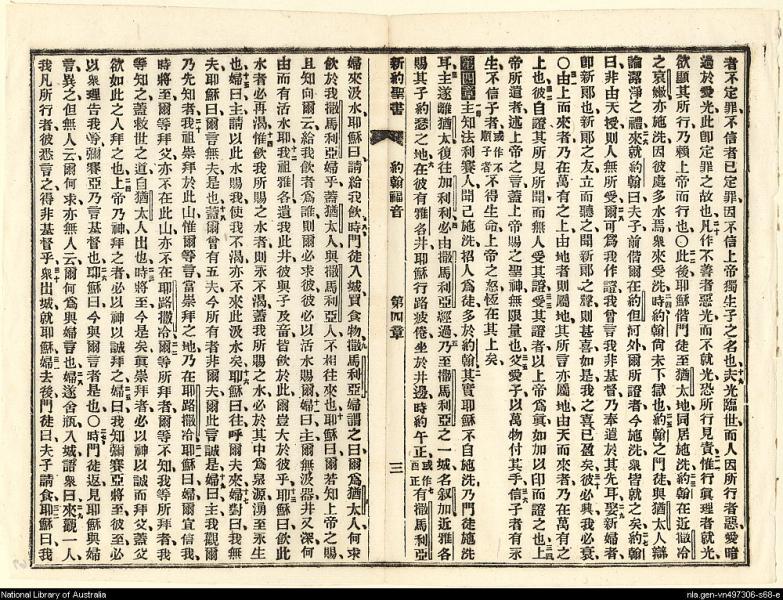 者不定罪不信者已定罪因不信上帝獨生子之名也夫光臨世而人因所行者惡愛暗
過於愛光此即定罪之故也凡作不善者惡光而不就光恐所行見責惟行眞理者就光
欲顯其所行乃賴上帝而行也〇此後耶穌偕門徒至猶太地同居施洗約翰在近撒冷
之哀嫩亦施洗因彼處多水焉衆來受洗時約翰尚未下獄也約翰之門徒與猶太人辯
論潔淨之禮來就約翰曰夫子前偕爾在約但河外爾所證者今施洗衆皆就之矣約翰
曰非由天授則人無所受爾可爲我作證我曾言我非基督乃奉遣於其先耳娶新婦者
卽新郞也新郞之友立而聽之聞新郞之聲則甚喜如是我之喜已盈矣彼必興我必衰
〇由上而來者乃在萬有之上由地者則屬地其所言亦屬地由天而來者乃在萬有之
上也彼自證其所見所聞而無人受其證受其證者以上帝爲眞如加以印而證之也上
帝所遣者述上帝之言蓋上帝賜之聖神無限量也父愛子以萬物付其手信子者有永
生不信子者或作不順子者不得生命上帝之怒恆在其上矣
第四章主知法利賽人聞己施洗招人爲徒多於約翰其實耶穌不自施洗乃門徒施洗
耳主遂離猶太復往加利利必由撒馬利亞經過乃至撒馬利亞之一城名叙加近雅各
賜其子約瑟之地在彼有雅各井耶穌行路疲倦坐於井邊時約午正或作酉正有撒馬利亞
新約聖書 約翰福音 第四章 三
婦來汲水耶穌曰請給我飲時門徒入城買食物撒馬利亞婦謂之曰爾爲猶太人何求
飲於我撒馬利亞婦乎蓋猶太人與撒馬利亞人不相往來也耶穌曰爾若知上帝之賜
且知向爾云給我飲者爲誰則爾必求彼彼必以活水賜爾婦曰主爾無汲器井又深何
由而有活水耶我祖雅各遺我此井彼與子及畜皆飲於此爾豈大於彼乎耶穌曰飲此
水者必再渴惟飲我所賜之水者則永不渴蓋我所賜之水必於其中爲泉源湧至永生
也婦曰主請以此水賜我使我不渴亦不來此汲水矣耶穌曰往呼爾夫來婦對曰我無
夫耶穌曰爾言無夫是也蓋爾曾有五夫今所有者非爾夫爾此言誠是婦曰主我觀爾
乃先知者我祖崇拜於此山惟爾等言當崇拜之地乃在耶路撒冷耶穌曰婦爾宜信我
時將至爾等拜父亦不在此山亦不在耶路撒冷爾等所拜者爾等不知我等所拜者我
等知之蓋救世之道自猶太人出也時將至今是矣眞崇拜者必以神以誠而拜父蓋父
欲如此之人拜之也上帝乃神拜之者必以神以誠拜之婦曰我知彌賽亞將至彼至必
以衆理告我等彌賽亞乃言基督也耶穌曰今與爾言者是也〇時門徒返見耶穌與婦
言異之但無人云爾何求亦無人云爾何爲與婦言也婦遂舍瓶入城語衆曰來觀一人
我凡所行者彼悉言之得非基督乎衆出城就耶穌婦去後門徒曰夫子請食耶穌曰我
National Library of Australia
nla.gen-vn497306-s68-e